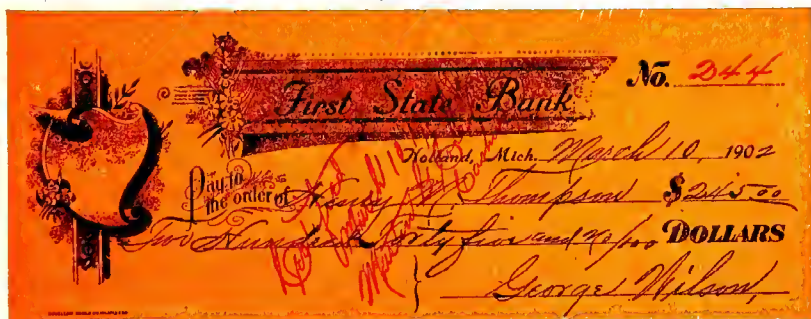 No. 244
First State Bank
Holland, Mich. March 10, 1902
Pay to the order of Henry Thompson $245.00
Two Hundred Forty five and no/100 DOLLARS
George Wilson,